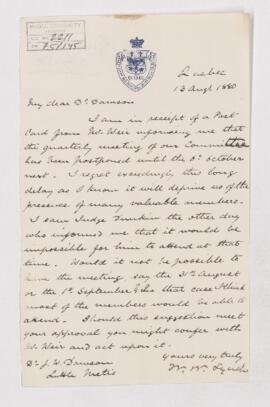 2211
75/145
Quebec
13 Augt 1880
My dear Dr. Dawson
I am in receipt of a Post
Card from Mr. Weir informing me that
the quarterly meeting of our Committee
has been postponed until the 5th October
next. I regret exceedingly this long
delay as I know it will deprive us of the
presence of many valuable members.
I saw Judge Dunkin the other day
who informed me that it would be
impossible for him to attend at that
time. Would it not be possible to
have the meeting say the 31st August
or the 1st September & in that case I think
most of the members would be able to
attend. Should this suggestion meet
your approval you might confer with
Mr Weir and act upon it.
Yours very truly
W. W. Lynch
Dr. J. W. Dawson
Little Metis